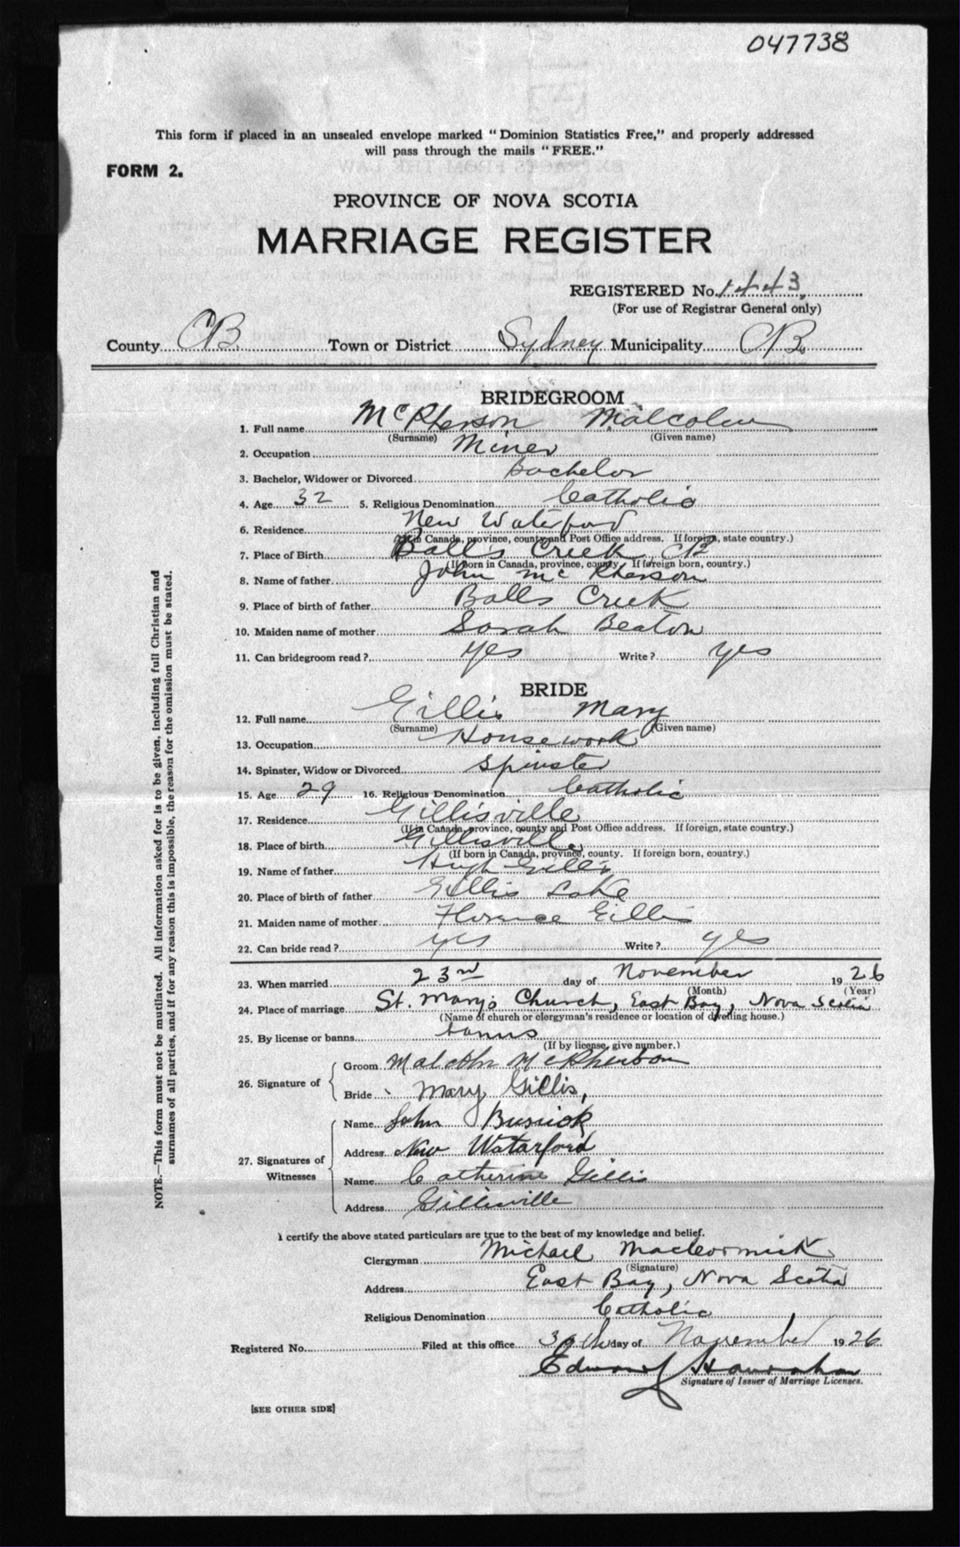 047738
This form if placed in an unsealed envelope marked "Dominion Statistics Free," and properly addressed
will pass through the mails "FREE."
FORM 2.
PROVINCE OF NOVA SCOTIA
MARRIAGE REGISTER
REGISTERED No. 1443
(For use of Registrar General only)
County CB Town or District Sydney Municipality CB
BRIDEGROOM
1. Full name McPherson Malcolm
(Surname) (Given name)
2. Occupation Miner
3. Bachelor, Widower or Divorced Bachelor
4. Age 32 5. Religious Denomination Catholic
6. Residence New Waterford
(If in Canada, province, county and Post Office address. If foreign, state country.)
7. Place of Birth Balls Creek CB
(If born in Canada, province, county. If foreign born, country.)
8. Name of father John McPherson
9. Place of birth of father Balls Creek
10. Maiden name of mother Sarah Beaton
11. Can bridegroom read? Yes Write? yes
BRIDE
12. Full name Gillis Mary
(Surname) (Given name)
13. Occupation Housework
14. Spinster, Widow or Divorced Spinster
15. Age 29 16. Religious Denomination Catholic
17. Residence Gillisville
(If in Canada, province, county and Post Office address. If foreign, state country.)
18. Place of birth Gillisville
(If born in Canada, province, county. If foreign born, country.)
19. Name of father Hugh Gillis
20. Place of birth of father Gillis Lake
21. Maiden name of mother Florence Gillis
22. Can bride read? yes Write? yes
23. When married 23rd day of November 1926
(Month) (Year)
24. Place of marriage St. Mary's Church, East Bay, Nova Scotia
(Name of church or clergyman's residence or location of dwelling house.)
25. By license or banns banns
(If by license, give number.)
26. Signature of
Groom Malcolm McPherson
Bride Mary Gillis,
27. Signatures of Witnesses
Name John
Address New Waterford
Name Catherine Gillis
Address Gillisville
I certify the above stated particulars are true to the best of my knowledge and belief.
Clergyman Michael MacCormick
(Signature)
Address East Bay, Nova Scotia
Religious Denomination Catholic
Registered No. Filed at this office 30th day of November 1926
Edward
Signature of Issuer of Marriage Licenses.
[SEE OTHER SIDE]
NOTE.—This form must not be mutilated. All information asked for is to be given, including full Christian and
surnames of all parties, and if for any reason this is impossible, the reason for the omission must be stated.